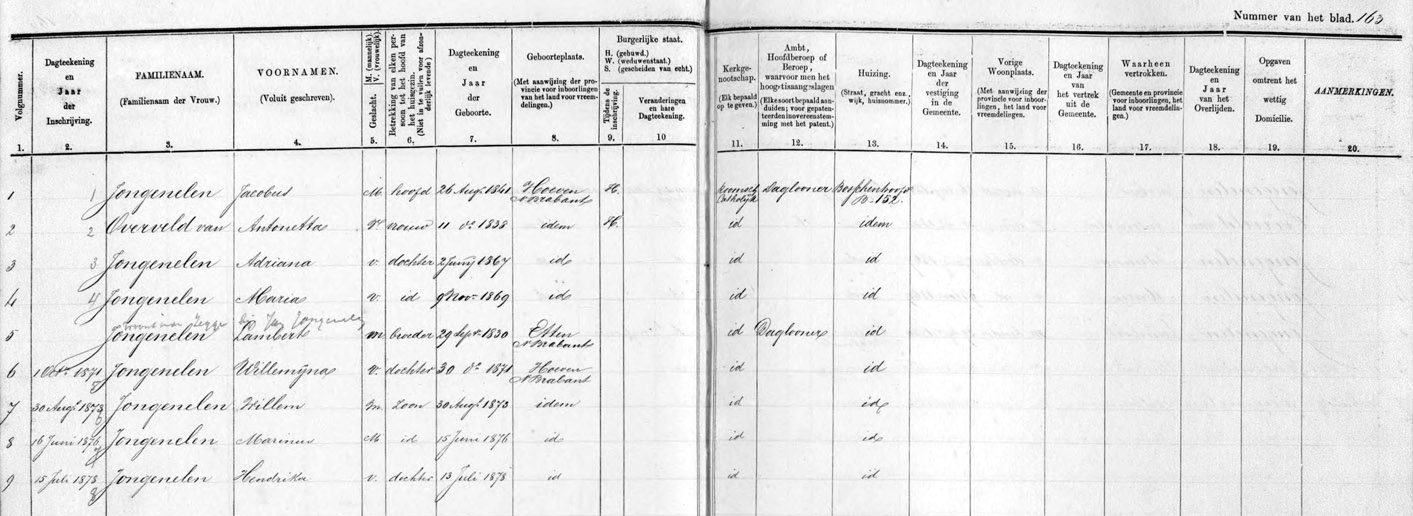 Nummer van het blad. 163
Volgnummer.
Dagteekening en Jaar der Inschrijving.
FAMILIENAAM.
(Familienaam der Vrouw.)
VOORNAMEN.
(Voluit geschreven.)
Geslacht. M. (mannelijk). V. (vrouwelijk).
Betrekking van elken persoon tot het hoofd van het huisgezin. (Niet in te vullen voor afzonderlijk levende)
Dagteekening en Jaar der Geboorte.
Geboorteplaats.
(Met aanwijzing der provincie voor inboorlingen van het land voor vreemdelingen.)
Burgerlijke staat.
H. (gehuwd.)
W. (weduwenstaat.)
S. (gescheiden van echt.)
Tijdens de inschrijving.
Veranderingen en hare Dagteekening.
Kerkgenootschap.
(Elk bepaald op te geven.)
Ambt, Hoofdberoep of Beroep, waarvoor men het hoogst is aangeslagen
(Elke soort bepaald aanduiden; voor gepatenteerden in overeenstemming met het patent.)
Huizing.
(Straat, gracht enz., wijk, huisnommer.)
Dagteekening en Jaar der vestiging in de Gemeente.
Vorige Woonplaats.
(Met aanwijzing der provincie voor inboorlingen, het land voor vreemdelingen.)
Dagteekening en Jaar van het vertrek uit de Gemeente.
Waarheen vertrokken.
(Gemeente en provincie voor inboorlingen, het land voor vreemdelingen.)
Dagteekening en Jaar van het Overlijden.
Opgaven omtrent het wettig Domicilie.
AANMERKINGEN.
1. 2. 3. 4. 5. 6. 7. 8. 9. 10 11. 12. 13. 14. 15. 16. 17. 18. 19. 20.
1 1 Jongenelen Jacobus M. hoofd 26 Aug. 1841 Hoeven N Brabant H. Roomsch Catholijk Daglooner Bosschenhoofd 152
2 2 Overveld van Antonetta V. vrouw 11 do 1838 idem H. id idem
3 3 Jongenelen Adriana v. dochter 2 Junij 1867 id id id
4 4 Jongenelen Maria v. id 9 Nov. 1869 id id id
5 Jongenelen Lambert m broeder 29 Sept. 1830 Etten N Brabant id Daglooner id
6 1 Oct. 1871 Jongenelen Willemijna v. dochter 30 do 1871 Hoeven N Brabant id id
7 30 Augt 1873 Jongenelen Willem m. Zoon 30 Augt 1873 idem id id
8 16 Juni 1876 Jongenelen Marinus M id 15 Juni 1876 id id id
9 15 Juli 1878 Jongenelen Hendrika v. dochter 13 Juli 1878 id id id